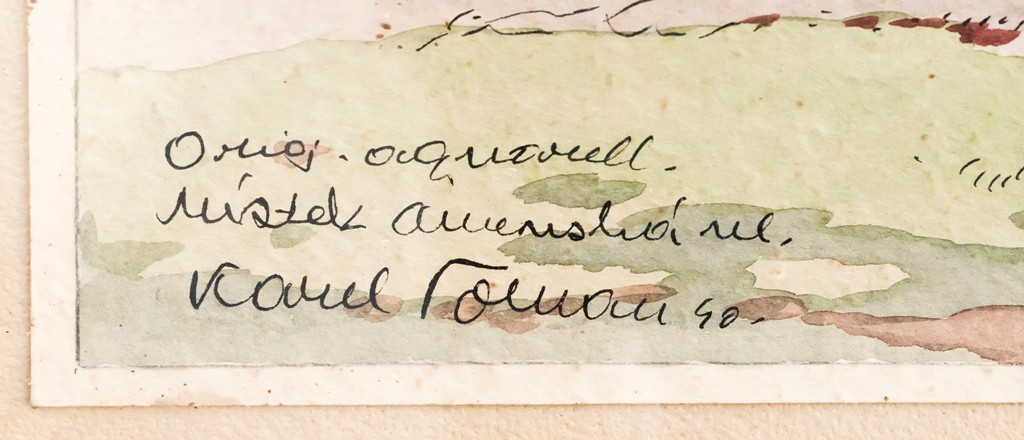 Orig. aquarell.
Místek Amenská ul.
Karel Toman 40.